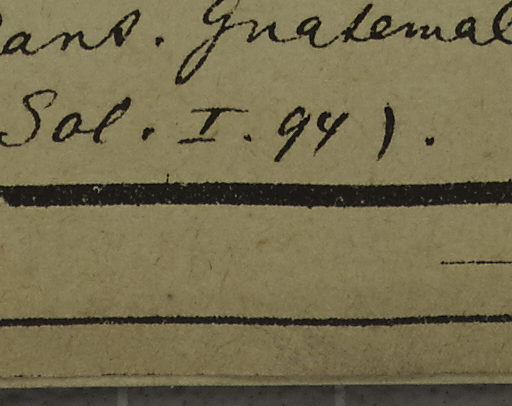 Pans. Guatemal
Sol. I. 94).